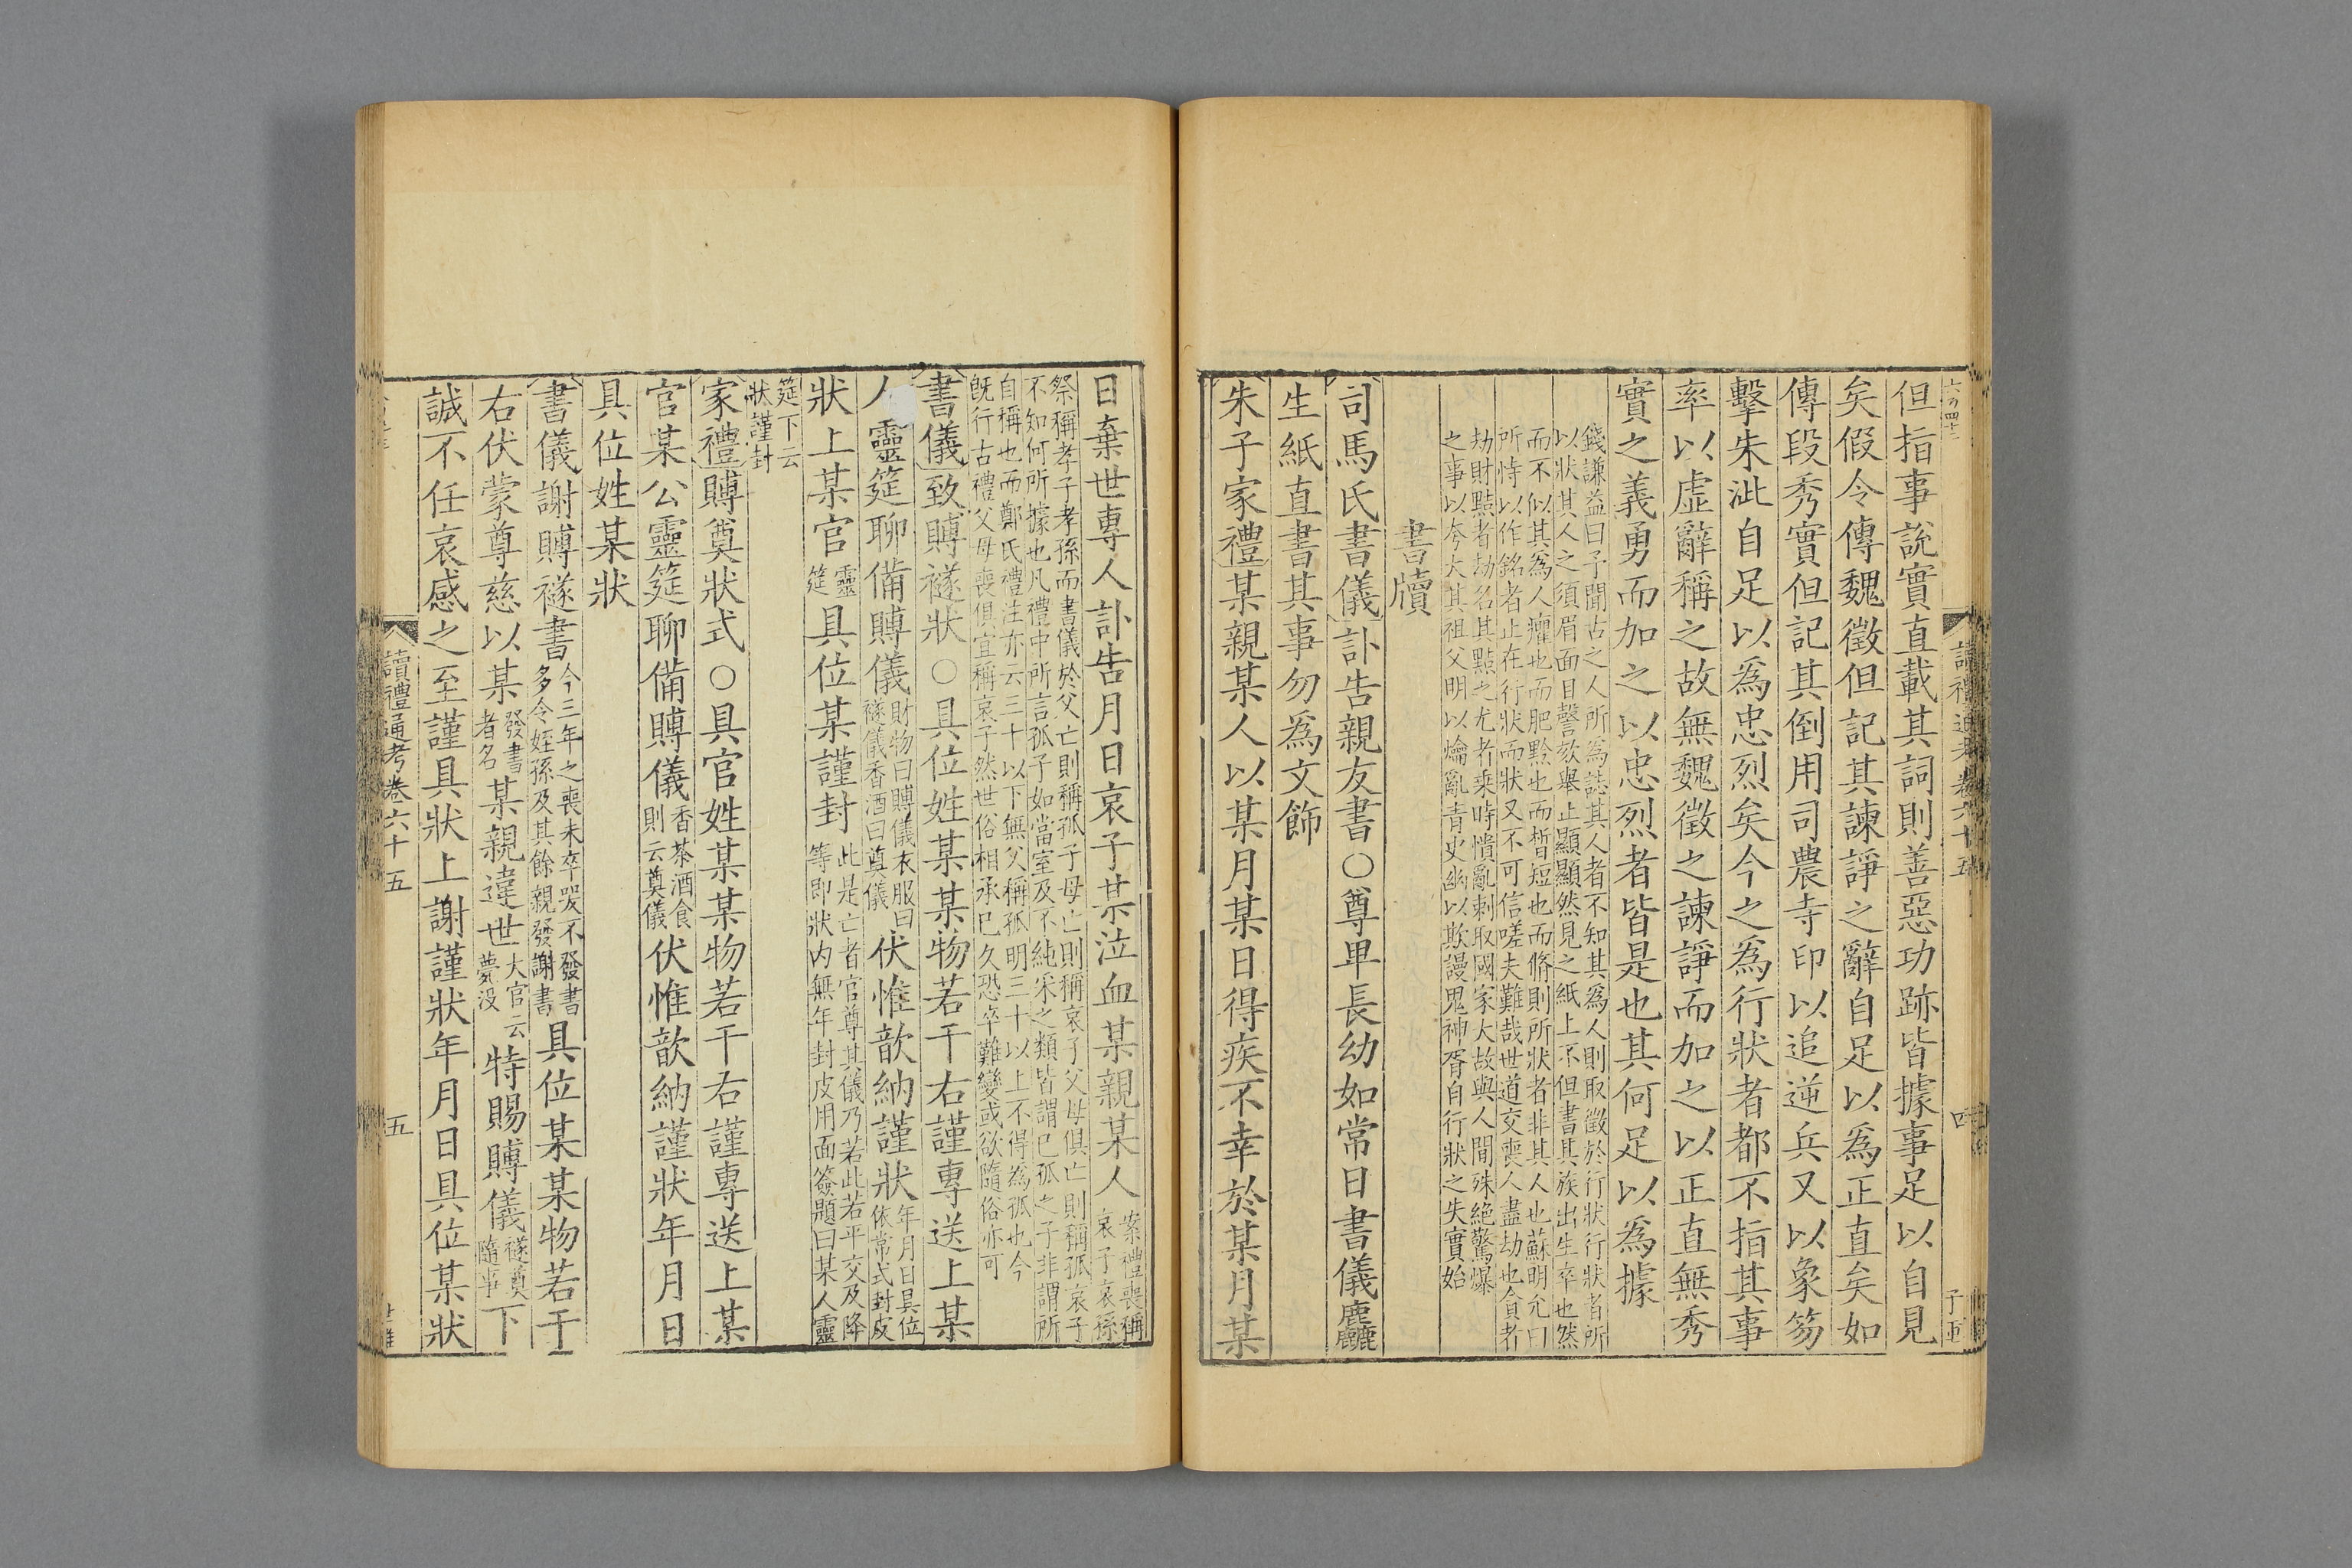 但指事說實直載其詞則善惡功跡皆據事足以自見
矣假令傳魏徵但記其諫諍之辭自足以爲正直矣如
傳段秀實但記其倒用司農寺印以追逆兵又以象笏
擊朱泚自足以爲忠烈矣今之爲行狀者都不指其事
率以虛辭稱之故無魏徵之諫諍而加之以正直無秀
實之義勇而加之以忠烈者皆是也其何足以爲據
錢謙益曰予聞古之人所爲誌其人者不知其爲人則取徵於行狀行狀者所
以狀其人之須眉面目謦欬舉止顯顯然見之紙上不但書其族出生卒也然
而不似其爲人癯也而肥黔也而晳短也而脩則所狀者非其人也蘇明允曰
所恃以作銘者止在行狀而狀又不可信嗟夫難哉世道交喪人盡劫也貪者
劫財黠者劫名其黠之尤者乘時憒亂刺取國家大故與人間殊絶驚爆
之事以夸大其祖父明以爚亂青史幽以欺謾鬼神胥自行狀之失實始
書牘
司馬氏書儀訃告親友書○尊卑長幼如常日書儀麤
生紙直書其事勿爲文飾
朱子家禮某親某人以某月某日得疾不幸於某月某
讀禮通考卷六十五
四
日棄世專人訃告月日哀子某泣血某親某人
案禮喪稱哀子哀孫
祭稱孝子孝孫而書儀於父亡則稱孤子母亡則稱哀子父母俱亡則稱孤哀子
不知何所據也凡禮中所言孤子如當室及不純采之類皆謂已孤之子非謂所
自稱也而鄭氏禮注亦云三十以下無父稱孤明三十以上不得爲孤也今
旣行古禮父母喪俱宜稱哀子然世俗相承已久恐卒難變或欲隨俗亦可
書儀致賻襚狀○具位姓某某物若干右謹專送上某
人靈筵聊備賻儀財物曰賻儀衣服曰襚儀香酒曰奠儀伏惟歆納謹狀年月日具位依常式封皮
狀上某官靈筵具位某謹封此是亡者官尊其儀乃若此若平交及降等即狀内無年封皮用面簽題曰某人靈
筵下云狀謹封
家禮賻奠狀式○具官姓某某物若干右謹專送上某
官某公靈筵聊備賻儀香茶酒食則云奠儀伏惟歆納謹狀年月日
具位姓某狀
書儀謝賻襚書今三年之喪未卒哭不發書多令姪孫及其餘親發謝書具位某某物若干
右伏蒙尊慈以某發書者名某親違世大官云薨没特賜賻儀襚奠隨事下
誠不任哀感之至謹具狀上謝謹狀年月日具位某狀
讀禮通考卷六十五
五